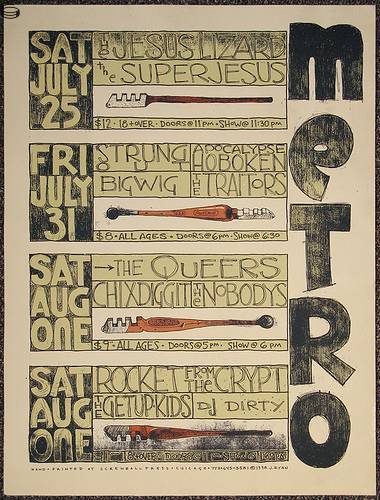 metro
SAT
JULY
25
THE JESUS LIZARD
the SUPERJESUS
$12 · 18+OVER · DOORS@11PM · SHOW@11:30PM
FRI
JULY
31
STRUNG
APOCALYPSE
HOBOKEN
BIGWIG
THE TRAITORS
$8 · ALL AGES · DOORS@6PM · SHOW@6:30
SAT
AUG
ONE
→THE QUEERS
CHIXDIGGIT THE NOBODYS
$9 · ALL AGES · DOORS@5PM · SHOW@6PM
SAT
AUG
ONE
ROCKET FROM THE CRYPT
THE GETUPKIDS
DJ DIRTY
HAND · PRINTED AT SCREWBALL PRESS · CHICAGO